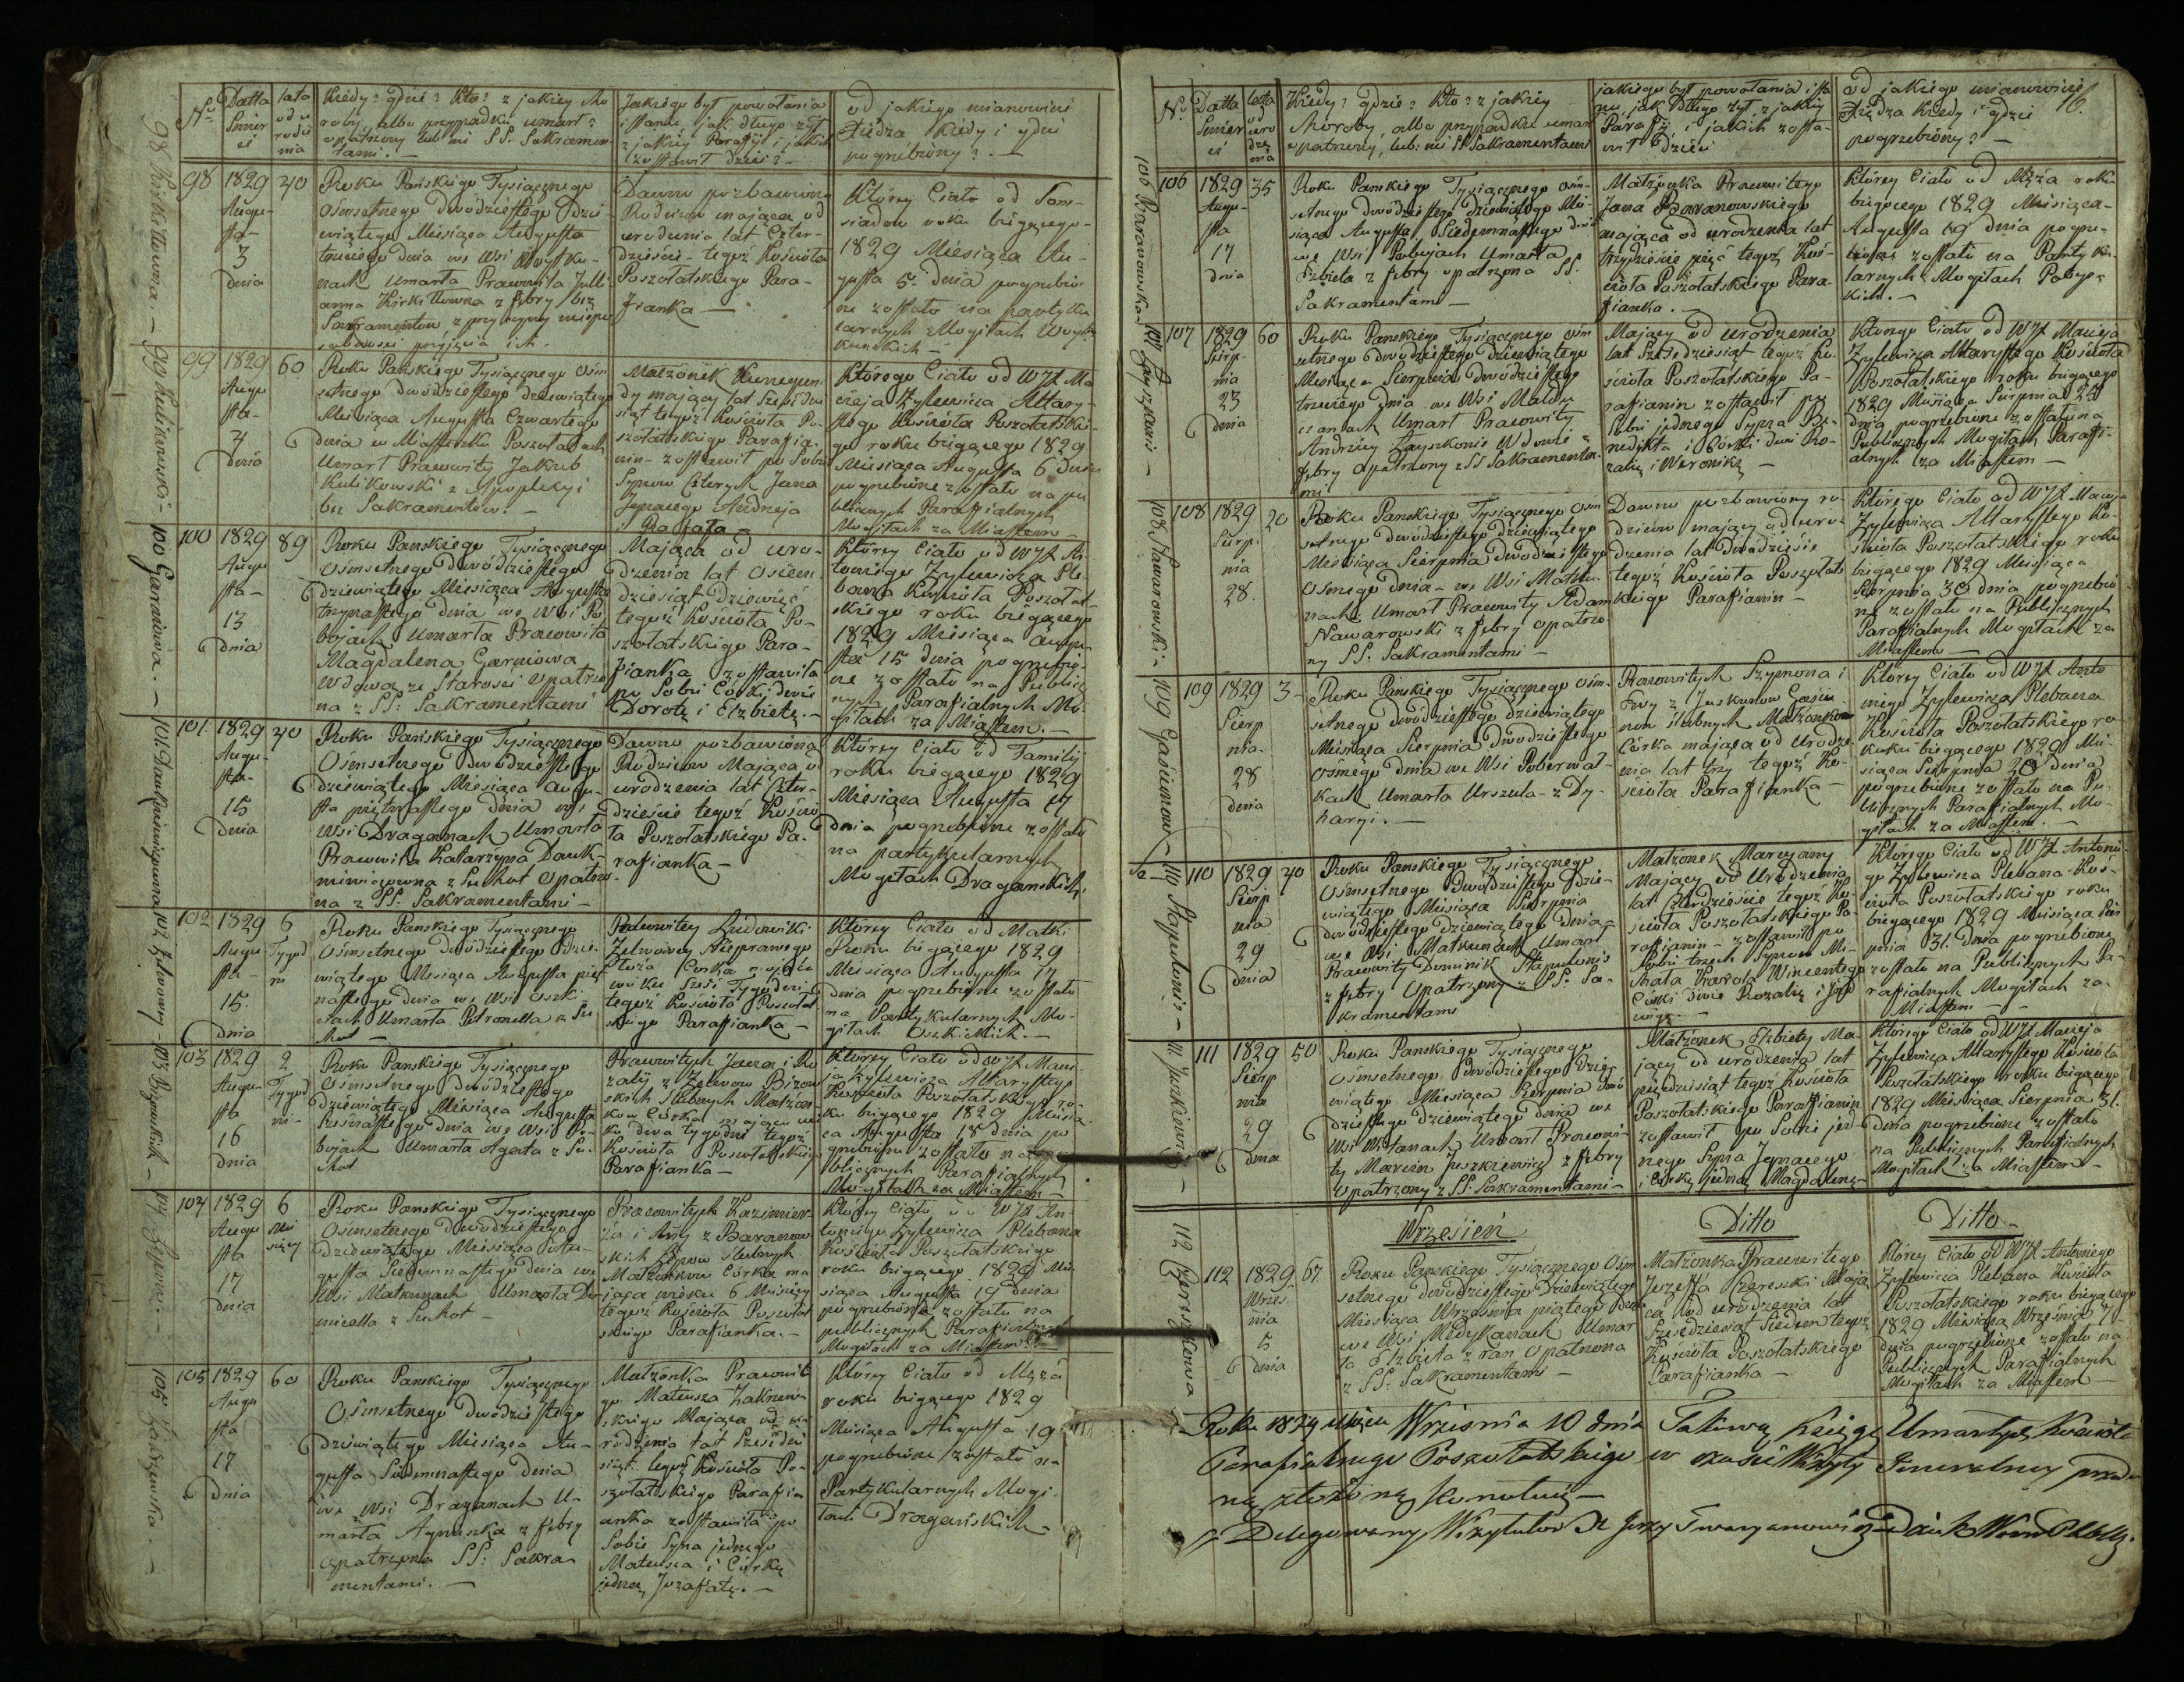 Nro
Datta Śmierci
lata od urodzenia
Kiedy? gdzie? Kto? z jakiey Cho
roby, albo przypadku umarł?
opatrzony lub nie SS. Sakramen
tami. —
Jakiego był powołania
i stanu jak długo żył
z jakiey Parafij i jakich
zostawił dzieci? —
od jakiego mianowicie
Xiędza kiedy i gdzie
pogrzebiony? —
98
1829
Augu-
sta-
3
dnia
40
Roku Pańskiego Tysiącznego
Ośmsetnego dwódziestego dzie-
wiątego Miesiąca Augusta
trzeciego dnia we Wsi
Umarła Prawowita Juli-
anna z febry bez
Sakramentow z przyczyny
przyjęcia ich.
Dawno pozbawiona
Rodzicow mająca od
urodzenia lat Czter-
dzieście tegoż Kościoła
Poszołatskiego Para-
fianka —
Którey Ciało od Som-
siadow roku biegącego
1829 Miesiąca Au-
gusta 5 dnia pogrzebio
ne zostało na partyku
larnych Mogiłach
99
1829
Augu
sta-
4
dnia
60
Roku Pańskiego Tysiącznego Ośm
setnego dwódziestego dziewiątego
Miesiąca Augusta Czwartego
dnia w Miasteczku Poszołatach
Umarł Prawowity Jakub
Kulikowski z Apoplexyi
bez Sakramentow. —
Małżonik Kunegun-
dy mający lat sześćdzie
siąt tegoż Kościoła Po-
szołatskiego Parafia-
nin- zostawił po Sobie
Synow Czterych Jana
Jgnacego Andrzeja
i Rafała —
Którego Ciało od WJX Ma
cieja Zylewicza Altary-
stego Kościoła Poszołatski-
go roku biegącego 1829
Miesiąca Augusta 6 dnia
pogrzebione zostało na pu
blicznych Parafialnych
Mogiłach za Miastem —
100
1829
Augu
sta-
13
dnia
89
Roku Pańskiego Tysiącznego
Ośmsetnego dwódziestego
dziewiątego Miesiąca Augusta
trzynastego dnia we Wsi Po
bojach Umarła Prawowita
Magdalena Garniowa
Wdowa ze Starości Opatrzo
na z SS: Sakramentami
Mająca od uro-
dzenia lat Ośiem
dziesiąt dziewięć
tegoż Kościoła Po-
szołatskiego Para-
fianka zostawiła
po Sobie Córki dwie
Dorotę i Elżbietę. —
Którey Ciało od WJX An
toniego Zylewicza Ple
bana Kościoła Poszołat-
skiego roku biegącego
1829 Miesiąca Augu-
sta 15 dnia pogrzebio-
ne zostało na Publicz
nych Parafialnych Mo-
giłach za Miastem. —
101
1829
Augu-
sta-
15
dnia
40
Roku Pańskiego Tysiącznego
Ośmsetnego Dwódziestego
dziewiątego Miesiąca Augu-
sta piętnastego dnia we
Wsi Draganach Umarła
Prawowita Katarzyna Dauk-
z Suchot Opatrzo-
na z SS: Sakramentami —
Dawno pozbawiona
Rodzicow Mająca od
urodzenia lat Czter-
dzieście tegoż Kościo
ła Poszołatskiego Pa-
rafianka —
Którey Ciało od Familij
roku biegącego 1829
Miesiąca Augusta 17
dnia pogrzebione zostało
na partykularnych
Mogiłach Draganskich
102
1829
Augu
sta-
15.
dnia
6
Tygod
ni
Roku Pańskiego Tysiącznego
Ośmsetnego dwódziestego dzie-
wiątego Miesiąca Augusta pięt
nastego dnia we Wsi
Umarła Petronella z Su
chot —
Prawowitey Ludowiki
Nieprawego
Łoża Córka mająca
wieku sześć Tygodni
tegoż Kościoła Poszołat-
skiego Parafianka —
Którey Ciało od Matki
Roku biegącego 1829
Miesiąca Augusta 17
dnia pogrzebione zostało
na Partykularnych Mo-
giłach
103
1829
Augu-
sta
16
dnia
2
Tygod
ni-
Roku Pańskiego Tysiącznego
Ośmsetnego dwódziestego
Dziewiątego Miesiąca Augusta
Szesnastego dnia we Wsi Po-
bojach Umarła Agata z Su-
chot
Prawowitych Jana i Ro
zalij z
skich ślubnych Małżon
kow Córka mająca wie
ku dwa tygodni tegoż
Kościoła Poszołatskiego
Parafianka —
Którey Ciało od WJX Macie
ja Zylewicza Altarystego
Kościoła Poszołatskiego ro-
ku biegącego 1829 Miesią-
ca Augusta 18 dnia po
grzebione zostało na
blicznych Parafialnych
Mogiłach za Miastem —
104
1829
Augu
sta
17
dnia
6
Mie
sięcy
Roku Pańskiego Tysiącznego
Ośmsetnego Dwódziestego
Dziewiątego Miesiąca Au-
gusta Siedmnastego dnia we
Wsi Matkunach Umarła Do-
micella z Suchot —
Prawowitych Kazimier-
za i Anny z Baranow-
skich ślubnych
Małżonkow Córka ma
jąca wieku 6 Miesięcy
tegoż Kościoła Poszołat
skiego Parafianka. —
Którey Ciało od WJX An-
toniego Zylewicza Plebana
Kościoła Poszołatskiego
roku biegącego 1829 Mie-
siąca Augusta 19 dnia
pogrzebione zostało na
publicznych Parafialnych
Mogiłach za Miastem —
105
1829
Augu
sta
17
dnia
60
Roku Pańskiego Tysiącznego
Ośmsetnego Dwódziestego
dziewiątego Miesiąca Au-
gusta Siedmnastego dnia
we Wsi Draganach U-
marła Agnieszka z febry
opatrzona SS: Sakra-
mentami. —
Małżonka Prawowite
go Mateusza Zakrzew-
skiego Mająca od u-
rodzenia lat Sześćdzie
siąt tegoż Kościoła Po-
szołatskiego Parafia
anka zostawiła po
Sobie Syna jednego
Mateusza i Córkę
jedną Jozafatę. —
Którey Ciało od Męża
roku biegącego 1829
Miesiąca Augusta 19
pogrzebione zostało na
Partykularnych Mogi-
łach Dragańskich
98 — 99 Kulikowski — 100 Garniowa. — 101 — 102 — 103 — 104 — 105 Zakrzewska. —
16.
Nro
Datta Śmierci
lata od urodzenia
Kiedy? gdzie? Kto? z jakiey
Choroby, albo przypadku umarł
opatrzony, lub: nie SS Sakramentami
jakiego był powołania i sta
nu jak długo żył z jakiey
Parafij i jakich zosta-
wił Dzieci
od jakiego mianowicie
Xiędza kiedy i gdzie
pogrzebiony? —
106
1829
Augu-
sta
17
dnia
35
Roku Pańskiego Tysiącznego Ośm-
setnego dwódziestego dziewiątego Mie
siąca Augusta Siedmnastego dnia
we Wsi Pobojach Umarła
Elżbieta z febry opatrzona SS:
Sakramentami —
Małżonka Prawowitego
Jana Baranowskiego
mająca od urodzenia lat
trzydzieście pięć tegoż Koś-
cioła Poszołatskiego Para-
fianka. —
Którey Ciało od Męża roku
biegącego 1829 Miesiąca
Augusta 19 dnia pogrze-
bione zostało na Partyku
larnych Mogiłach
107
1829
Sierp-
nia
23
dnia
60
Roku Pańskiego Tysiącznego Ośm
setnego dwódziestego dziewiątego
Miesiąca Sierpnia dwódziestego
trzeciego dnia we Wsi
Umarł Prawowity
Andrzey Wdowiec z
febry opatrzony z SS Sakramenta-
mi
Mający od urodzenia
lat Sześćdziesiąt tegoż Ko-
ścioła Poszołatskiego Pa-
rafianin zostawił po
Sobie jednego Syna Be-
nedykta i Córki dwie Ro-
zalię i Weronikę —
Którego Ciało od WJX Macieja
Zylewicza Altarystego Kościoła
Poszołatskiego roku biegącego
1829 Miesiąca Sierpnia 25
dnia pogrzebione zostało na
Publicznych Mogiłach Parafi-
alnych za Miastem —
108
1829
Sierp.
nia
28.
20
Roku Pańskiego Tysiącznego Ośm
setnego dwódziestego dziewiątego
Miesiąca Sierpnia dwódziestego
Osmego dnia we Wsi Matku-
nach Umarł Prawowity Adam
Nawarowski z febry opatrzo-
ny SS: Sakramentami —
Dawno pozbawiony ro-
dzicow mający od uro-
dzenia lat Dwadzieście
tegoż Kościoła Poszołat-
skiego Parafianin —
Którego Ciało od WJX Macieja
Zylewicza Altarystego Ko-
ścioła Poszołatskiego roku
biegącego 1829 Miesiąca
Sierpnia 30 dnia pogrzebio-
ne zostało na Publicznych
Parafialnych Mogiłach za
Miastem —
109
1829
Sierp
nia.
28
dnia
3
Roku Pańskiego Tysiącznego Ośm-
setnego dwódziestego dziewiątego
Miesiąca Sierpnia Dwódziestego
Ośmego dnia we Wsi
Umarła Urszula z Dy-
haryi. —
Prawowitych Szymona i
Ewy z
ślubnych Małżonkow
Córka mająca od Urodze-
nia lat trzy tegoż Ko-
ścioła Parafianka —
Którey Ciało od WJX Anto
niego Zylewicza Plebana
Kościoła Poszołatskiego ro
ku biegącego 1829 Mie-
siąca Sierpnia dnia
pogrzebione zostało na Pu
blicznych Parafialnych Mo-
giłach za Miastem. —
110
1829
Sierp
nia
29
dnia
40
Roku Pańskiego Tysiącznego
Ośmsetnego dwódziestego dzie-
wiątego Miesiąca Sierpnia
dwódziestego dziewiątego dnia
we Wsi Matkunach Umarł
Prawowity Dominik Stapulonis
z febry Opatrzony z SS: Sa-
kramentami
Małżonek Marcyanny
Mający od Urodzenia
lat Czterdzieście tegoż Ko-
ścioła Poszołatskiego Pa-
rafianin — zostawił po
Sobie trzech Synow Mi-
chała Karola Wincentego
Córki dwie Rozalię i
Którego Ciało od WJX Antonie-
go Zylewicza Plebana Koś-
cioła Poszołatskiego roku
biegącego 1829 Miesiąca Sier
pnia 31. dnia pogrzebione
zostało na Publicznych Pa-
rafialnych Mogiłach za
Miastem —
111
1829
Sierp
nia
29
dnia
50
Roku Pańskiego Tysiącznego
Ośmsetnego dwódziestego Dzie-
wiątego Miesiąca Sierpnia dwó
dziestego dziewiątego dnia we
Wsi Umarł Prawowi-
ty Marcin Juszkiewicz z febry
opatrzony z SS: Sakramentami —
Małżonek Elżbiety Ma-
jący od urodzenia lat
pięćdziesiąt tegoż Kościoła
Poszołatskiego Parafianin
zostawił po Sobie jed-
nego Syna Jgnacego
i Córkę jedną Magdalenę
Którego Ciało od WJX Macieja
Zylewicza Altarystego Kościoła
Poszołatskiego roku biegącego
1829 Miesiąca Sierpnia 31.
dnia pogrzebione zostało
na Publicznych Parafialnych
Mogiłach za Miastem —
Wrzesień
Ditto
Ditto
112
1829
Wrześ-
nia
5
dnia
67
Roku Pańskiego Tysiącznego Ośm
setnego dwódziestego Dziewiątego
Miesiąca Września piątego dnia
we Wsi Umar
ła Elżbieta z ran Opatrzona
z SS: Sakramentami —
Małżonka Prawowitego
Jozeffa Mają
ca od urodzenia lat
Sześćdziesiąt Siedem tegoż
Kościoła Poszołatskiego
Parafianka —
Którey Ciało od WJX Antoniego
Zylewicza Plebana Kościoła
Poszołatskiego roku biegącego
1829 Miesiąca Września 7
dnia pogrzebione zostało na
Publicznych Parafialnych
Mogiłach za Miastem —
106 Baranowska — 107 — 108 Nawarowski — 109 — 110 Stapulonis — 111 Juszkiewicz — 112
Roku 1829 Września 10 dnia Takową Księgę Umarłych Kościoła
Parafialnego Poszołatskiego w czasie Wizyty Jeneralney
złożoną
Delegowany Wizytator X Jerzy